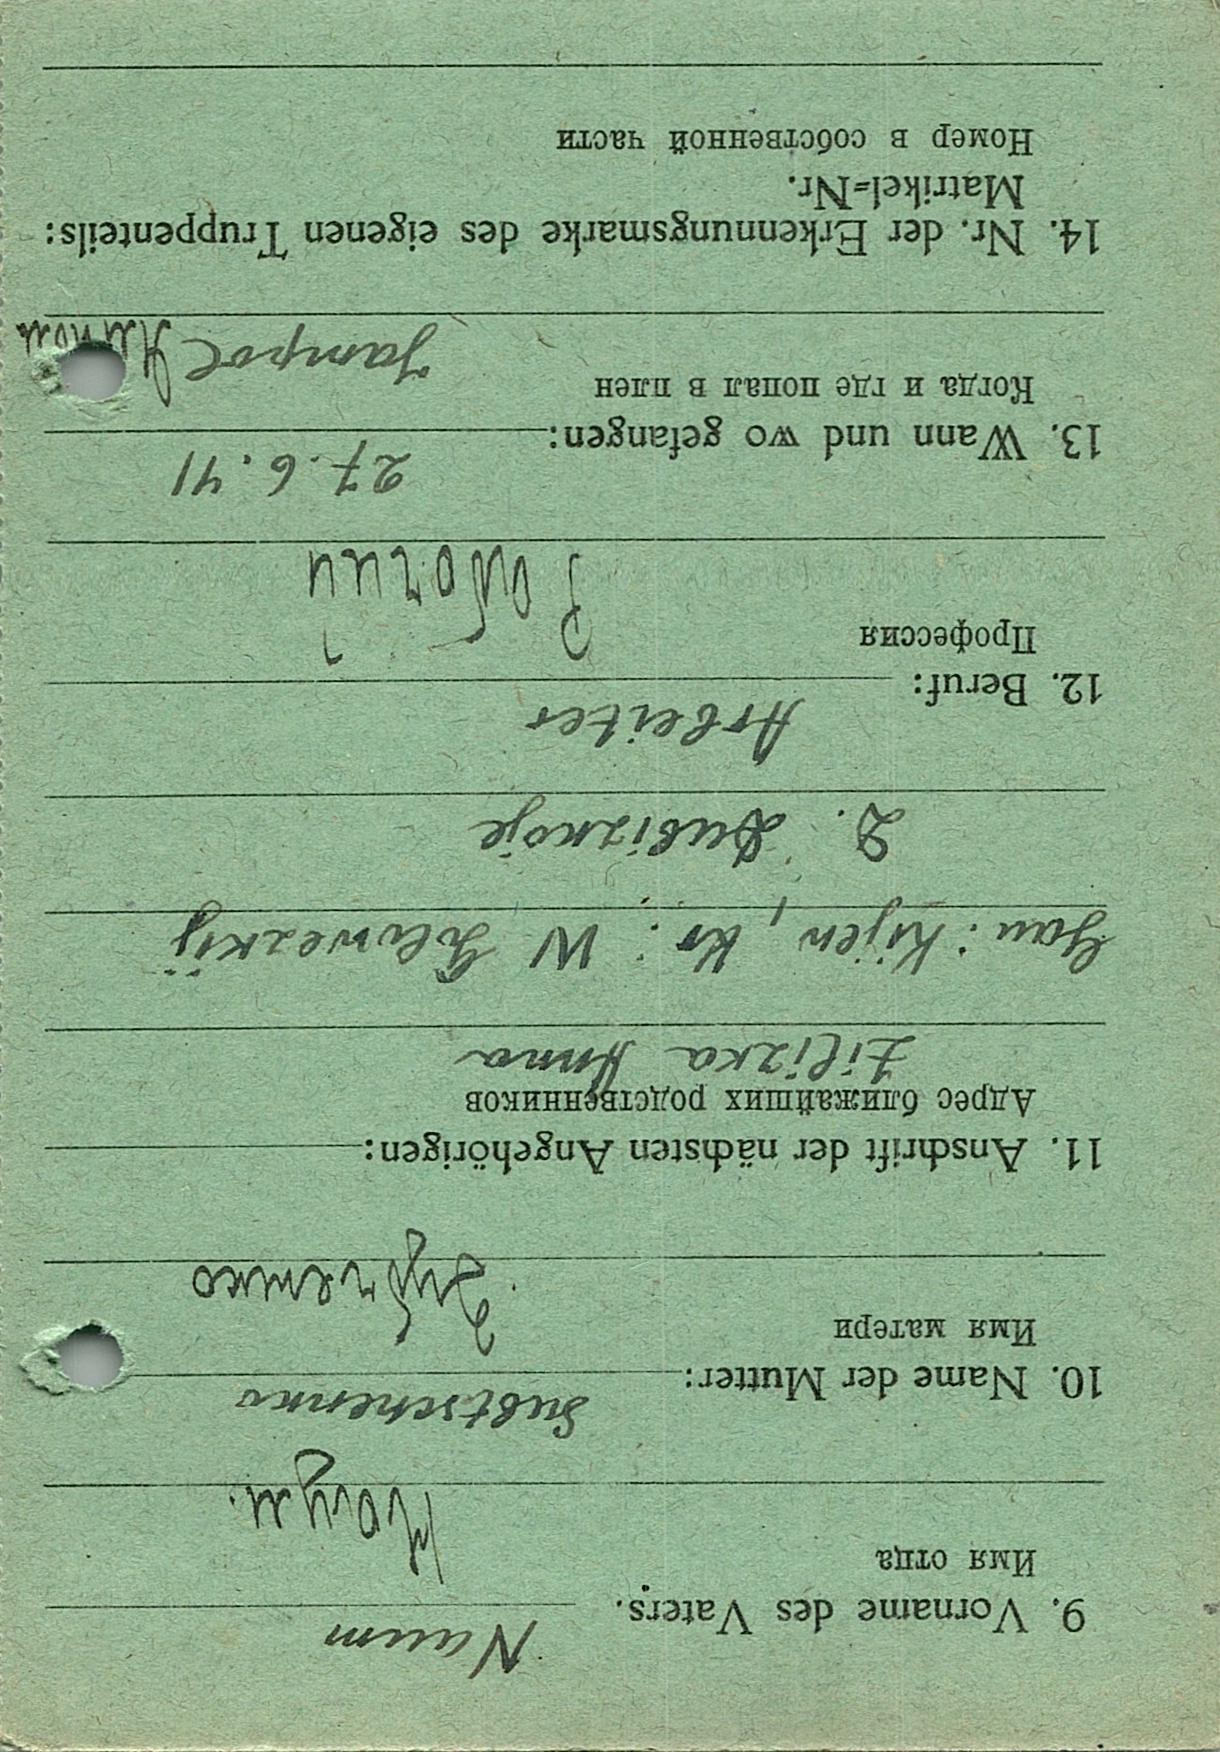 9. Vorname des Vaters.
Naum
Имя отца
Наум.
10. Name der Mutter:
Subtschenko
Имя матери
Зубченко
11. Anschrift der nächsten Angehörigen:
Адрес ближайших родственников
Anna
Gau: Kijew, Kr: W
D. Dubiznoje
12. Beruf:
Arbeiter
Профессия
Рабочий
13. Wann und wo gefangen:
27.6.41
Когда и где попал в плен
Jampol
14. Nr. der Erkennungsmarke des eigenen Truppenteils:
Matrikel-Nr.
Номер в собственной части